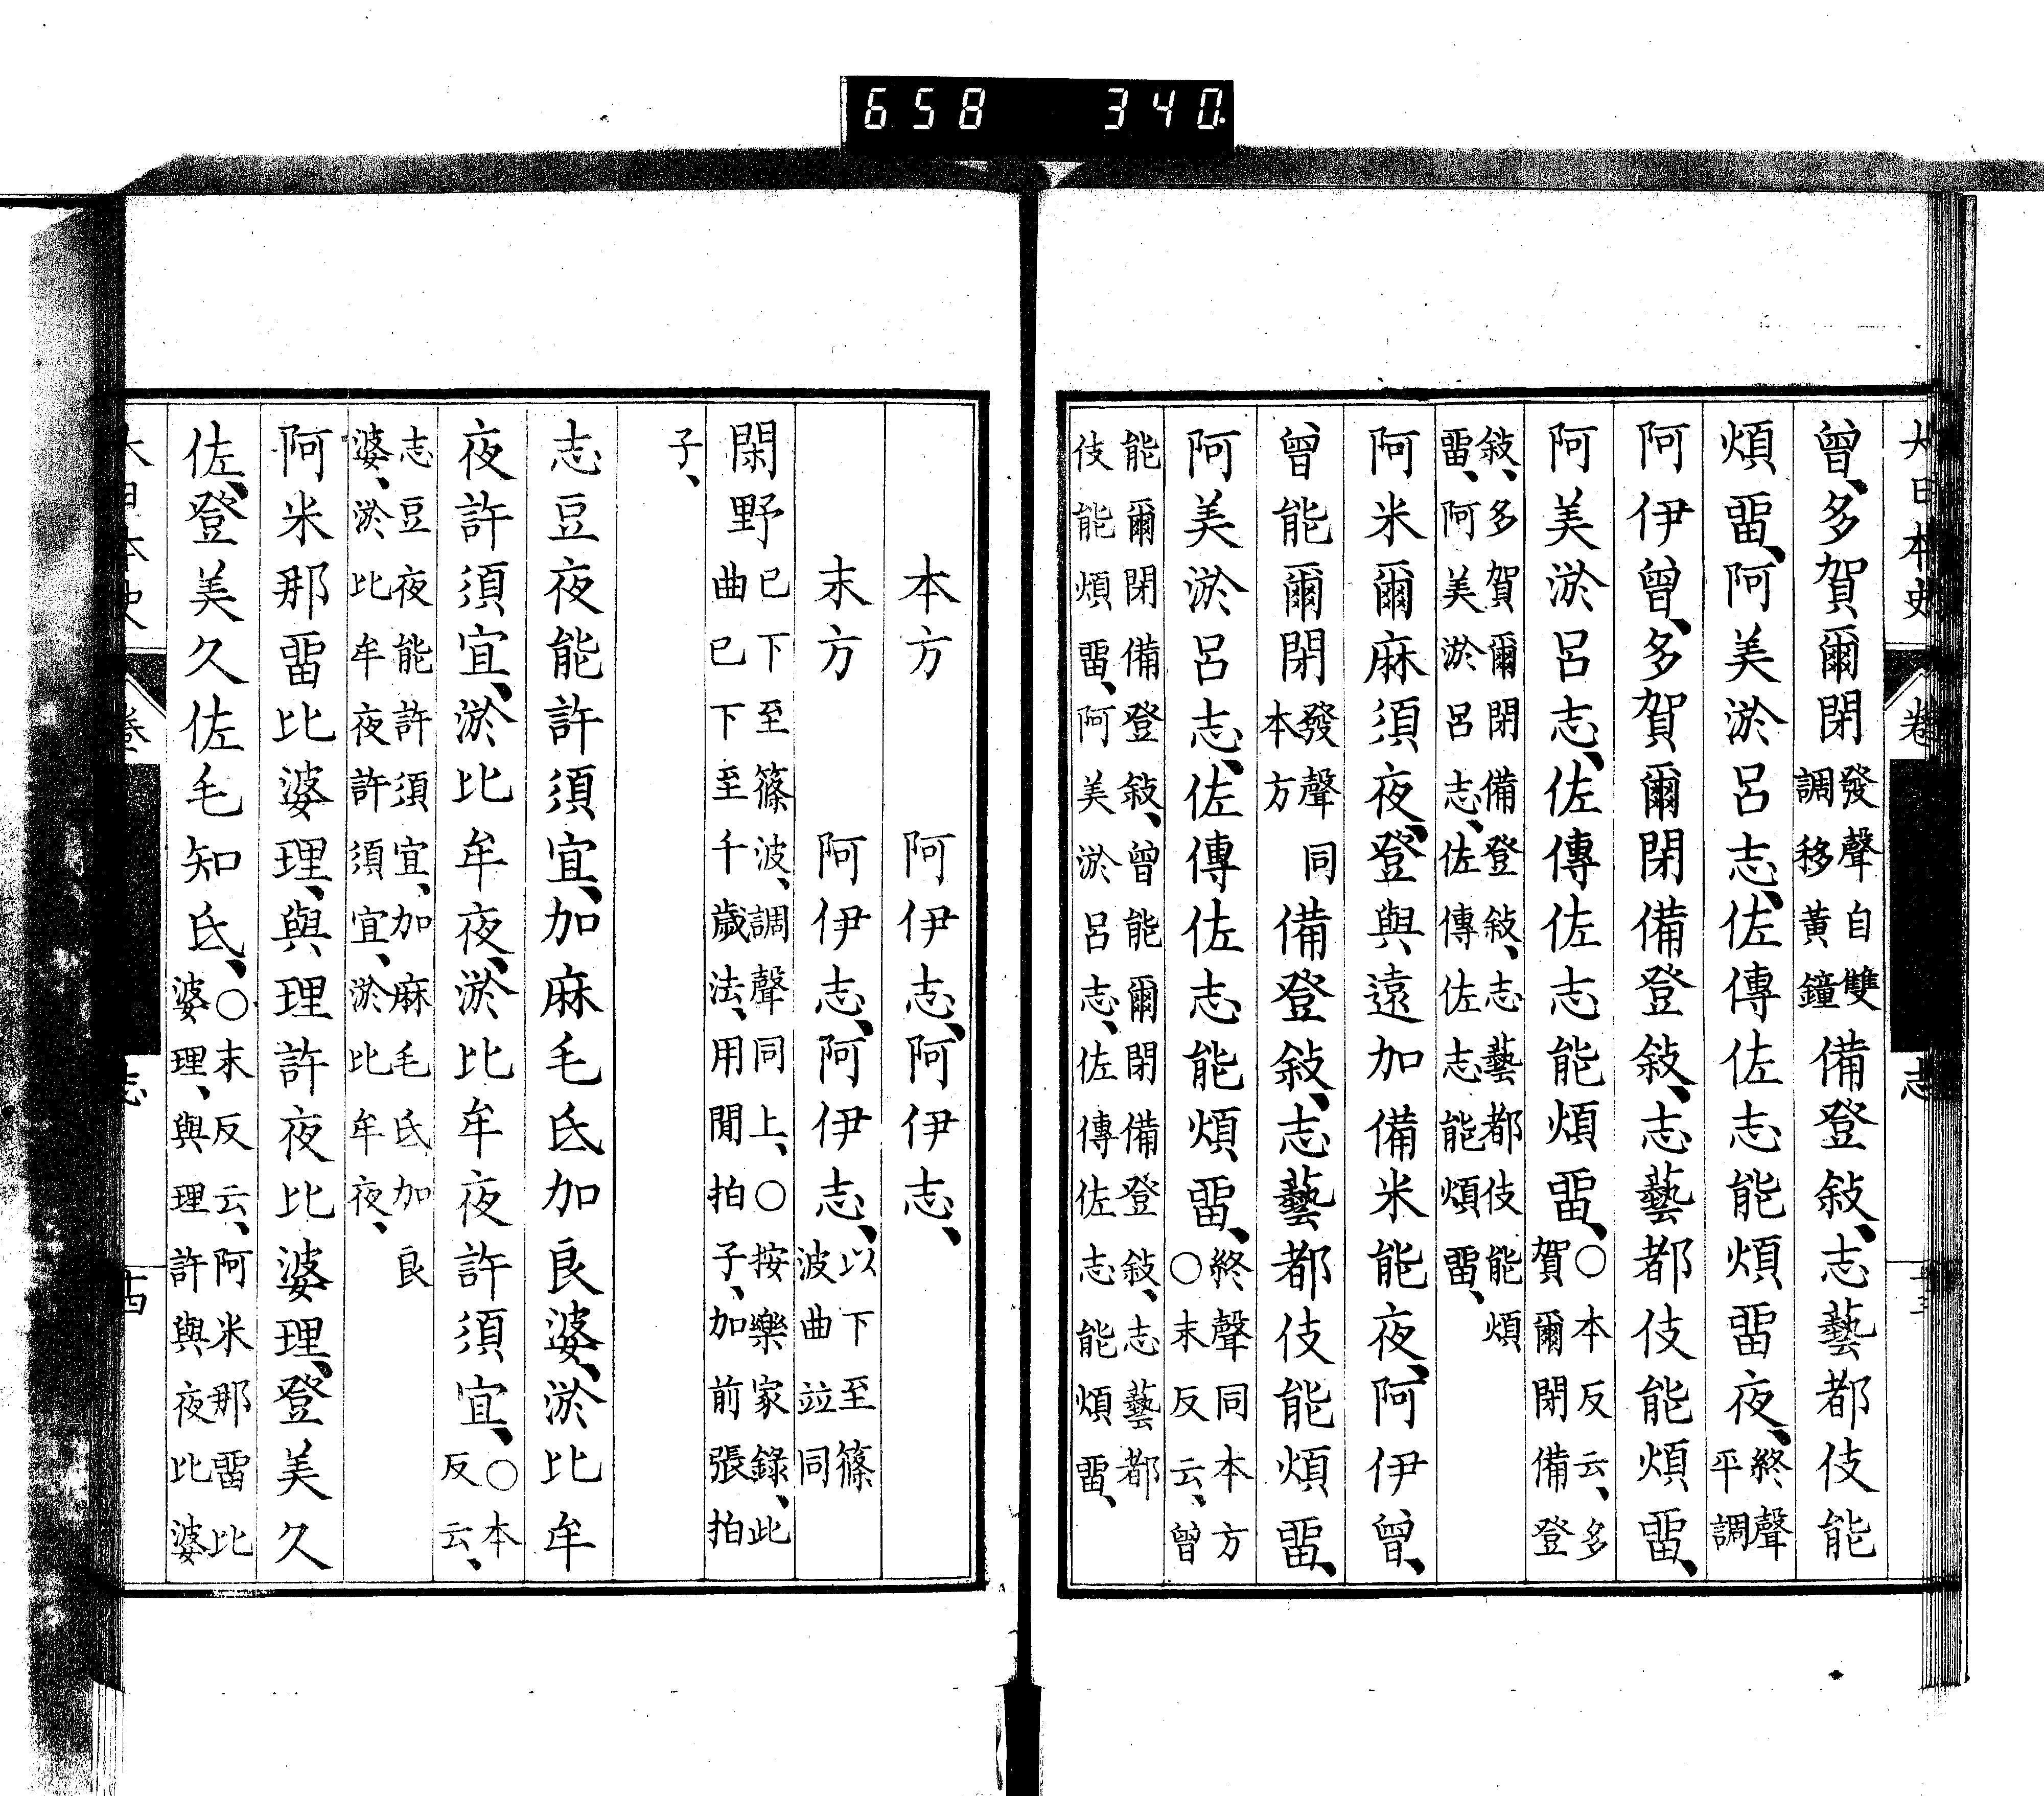 658 340
大日本史 卷 志
曾、多賀爾閉 發聲自雙調移黃鐘 備登敍、志藝都伎能
煩畱、阿美淤呂志、佐傳佐志能煩畱夜、終聲平調
阿伊曾、多賀爾閉備登敍、志藝都伎能煩畱、
阿美淤呂志、佐傳佐志能煩畱、○本反云、多賀爾閉備登
敍、多賀爾閉備登敍、志藝都伎能煩畱、阿美淤呂志、佐傳佐志能煩畱、
阿米爾麻須夜、登與遠加備米能夜、阿伊曾、
曾能爾閉 發聲同本方 備登敍、志藝都伎能煩畱、
阿美淤呂志、佐傳佐志能煩畱、終聲同本方○末反云、曾
能爾閉備登敍、曾能爾閉備登敍、志藝都伎能煩畱、阿美淤呂志、佐傳佐志能煩畱、
本方 阿伊志、阿伊志、
末方 阿伊志、阿伊志、以下至篠波曲竝同
閑野 已下至篠波、調聲同上、○按樂家錄、此曲已下至千歲法、用閒拍子、加前張拍
子、
志豆夜能許須宜、加麻毛氐加良婆、淤比牟
夜許須宜、淤比牟夜、淤比牟夜許須宜、○本反云、
志豆夜能許須宜、加麻毛氐加良婆、淤比牟夜許須宜、淤比牟夜、
阿米那畱比婆理、與理許夜比婆理、登美久
佐、登美久佐毛知氐、○末反云、阿米那畱比婆理、與理許與夜比婆
大日本史 卷 志